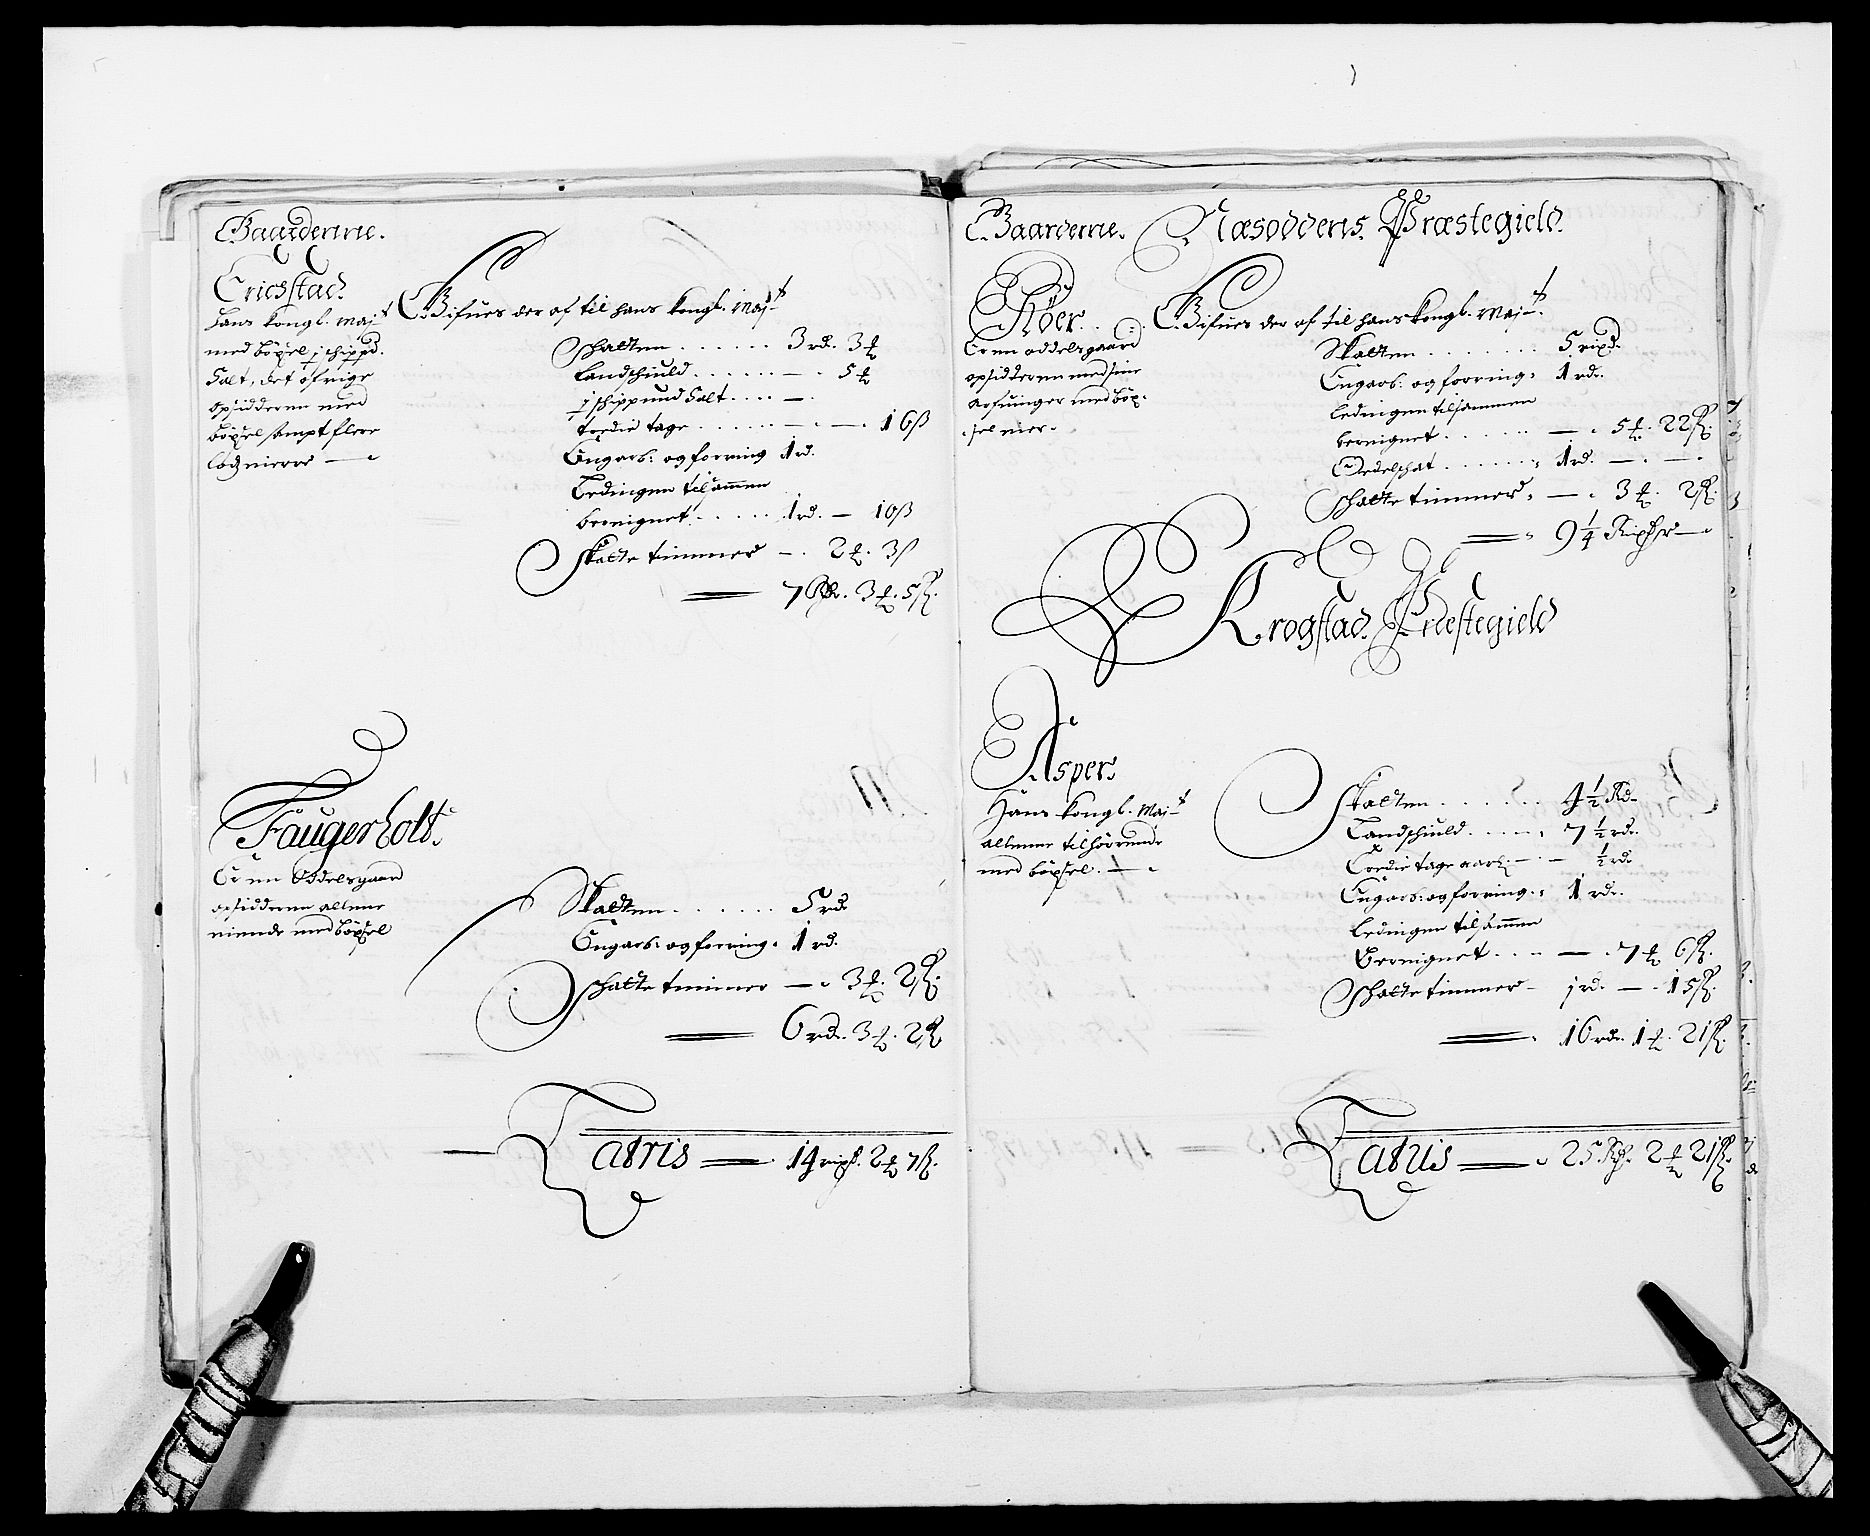 Gaarderne.
Erichstad
Hans kongl. Maj.t
med böxel j schippd.
Salt, det öfrige
opsidderen med
böxel sampt flere
lodzeierre —
Gifues der af til hans kongl. Maj.t
Schatten . . . . . . 3 rd. 3 ƒ
Landschiuld . . . . . . — . 5 ƒ
j schippund Salt . . . . —
tredie tage . . . . . . — . — . 16 ß
Engarb: og foering 1 rd.
Ledingen tilsammen
bereignet . . . . . 1 rd. — 10 ß
Skatte timmer — . 2 ƒ. 3 ß
7 Rdr. 3 ƒ. 5 ß.
Faugerholt.
Er en Oddelsgaard
opsidderen allene
eiende med böxsel
Skatten . . . . . . 5 rd
Engarb: og foering. 1 rd.
Schatte timmer — . 3 ƒ. 2 ß.
6 rd. 3 ƒ. 2 ß
Latris — 14 rixd. 2 ƒ 7 ß.
Gaarderne. Næsoddens Præstegield.
Röer. .
Er en oddelsgaard
opsidderen med sine
Arfuinger med böx-
sel eier.
Gifues der af til hans kongl. Maj.t
Skatten . . . . . . . 5 rixd.
Engarb: og foering: 1 rd.
Ledingen tilsammen
bereignet . . . . . . — . 5 ƒ. 22 ß.
Oedelschat . . . . . . : 1 rd. — . — .
Schatte timmer: — . 3 ƒ. 2 ß.
9 1/4 Rixdlr —
Krogstad Prdestegield
Asper.
Hans kongl. Maj.t
allenne tilhörende
med böxsel. —
Skatten . . . . . . 4 1/2 Rd
Landschiuld . . . . : 7 1/2 rd.
Tredie tage aarl. — . — 1/2 rd
Engarb: og foering. : 1 rd.
Ledingen tilsammen
Bereignet . . . — . 7 ƒ 6 ß.
Schatte timmer — j rd. — . 15 ß.
16 rd. 1 ƒ. 21 ß.
Latus — 25 Rdr. 2 ƒ 21 ß.